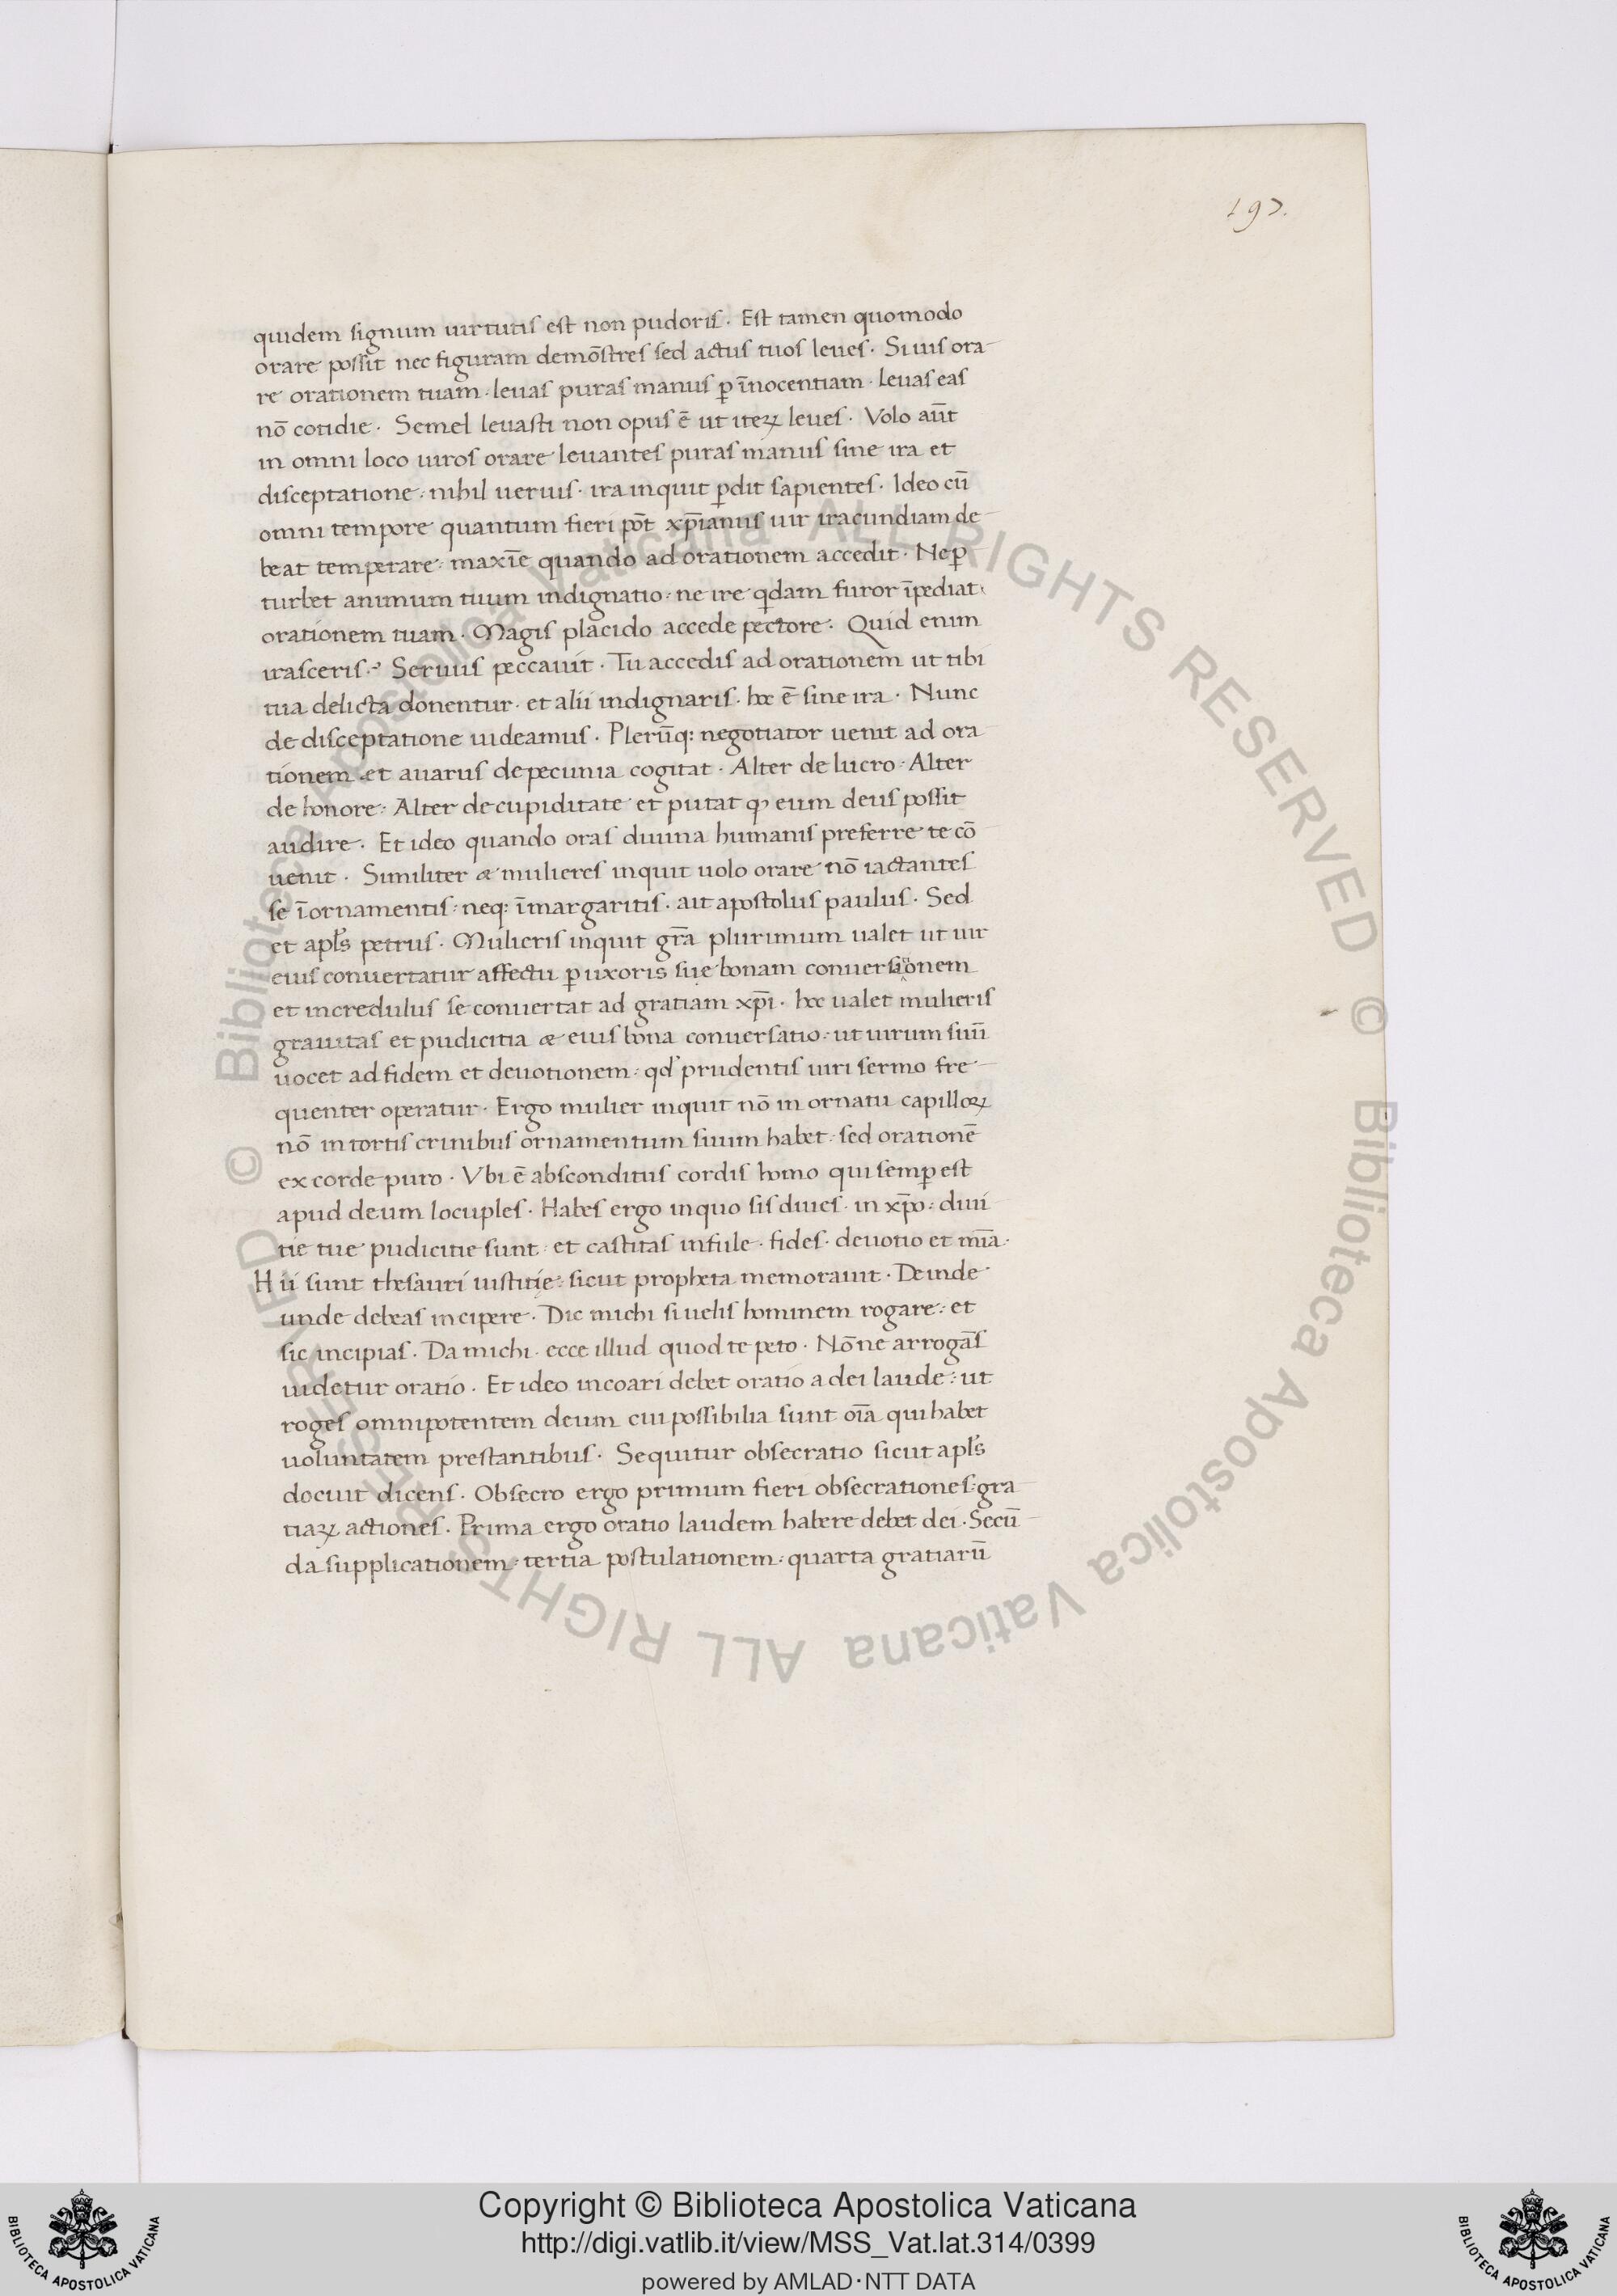 197.
quidem signum uirtutis est non pudoris. Est tamen quomodo
orare possit nec figuram demōstres sed actus tuos leues. Siuis ora-
re orationem tuam. leuas puras manus ꝑ īnocentiam. Leuas eas
nō cotidie. Semel leuasti non opus ē ut iteꝝ leues. Volo aūt
in omni loco uiros orare leuantes puras manus sine ira et
disceptatione: nihil uerius. ira inquit ꝑdit sapientes. Ideo cū
omni tempore quantum fieri pōt xp̄ianus uir iracundiam de-
beat temperare: maxīe quando ad orationem accedit. Neꝑ-
turbet animum tuum indignatio: ne ire qdam furor īpediat
orationem tuam. Magis placido accede pectore. Quid enim
irasceris? Seruus peccauit. Tu accedis ad orationem ut tibi
tua delicta donentur. et alii indignaris. hoc ē sine ira. Nunc
de disceptatione uideamus. Plerūq: negotiator uenit ad ora
tionem. et auarus de pecunia cogitat. Alter de lucro. Alter
de honore: Alter de cupiditate et putat ꝙ eum deus possit
audire. Et ideo quando oras diuina humanis preferre te cō
uenit. Similiter æ mulieres inquit uolo orare nō iactantes
se ī ornamentis: neq: ī margaritis. ait apostolus paulus. Sed
et apl̄s petrus. Mulieris inquit gr̄a plurimum ualet ut uir
eius conuertatur affectu ꝑ uxoris suę bonam conuersionem
et incredulus se conuertat ad gratiam xp̄i. hoc ualet mulieris
grauitas et pudicitia æ eius bona conuersatio. ut uirum suū
uocet ad fidem et deuotionem: qd' prudentis uiri sermo fre-
quenter operatur. Ergo mulier inquit nō in ornatu capilloꝝ
nō in tortis crinibus ornamentum suum habet: sed orationē
ex corde puro. Vbi ē absconditus cordis homo qui semꝑ est
apud deum locuples. Habes ergo inquo sis diues. in xp̄o: diui
tie tue pudicitie sunt: et castitas infule. fides. deuotio et mīa.
Hii sunt thesauri iustitię: sicut propheta memorauit. Deinde
unde debeas incipere. Dic michi si uelis hominem rogare: et
sic incipias. Da michi. ecce illud quod te peto. Nōne arrogās
uidetur oratio. Et ideo incoari debet oratio a dei laude: ut
roges omnipotentem deum cui possibilia sunt oīa qui habet
uoluntatem prestantibus. Sequitur obsecratio sicut apl̄s
docuit dicens. Obsecro ergo primum fieri obsecrationes: gra
tiaꝝ actiones. Prima ergo oratio laudem habere debet dei. Secū-
da supplicationem: tertia postulationem: quarta gratiarū
© Biblioteca Apostolica Vaticana ALL RIGHTS RESERVED © Biblioteca Apostolica Vaticana ALL RIGHTS RESERVED
Copyright © Biblioteca Apostolica Vaticana
http://digi.vatlib.it/view/MSS_Vat.lat.314/0399
powered by AMLAD·NTT DATA
BIBLIOTECA APOSTOLICA VATICANA
BIBLIOTECA APOSTOLICA VATICANA